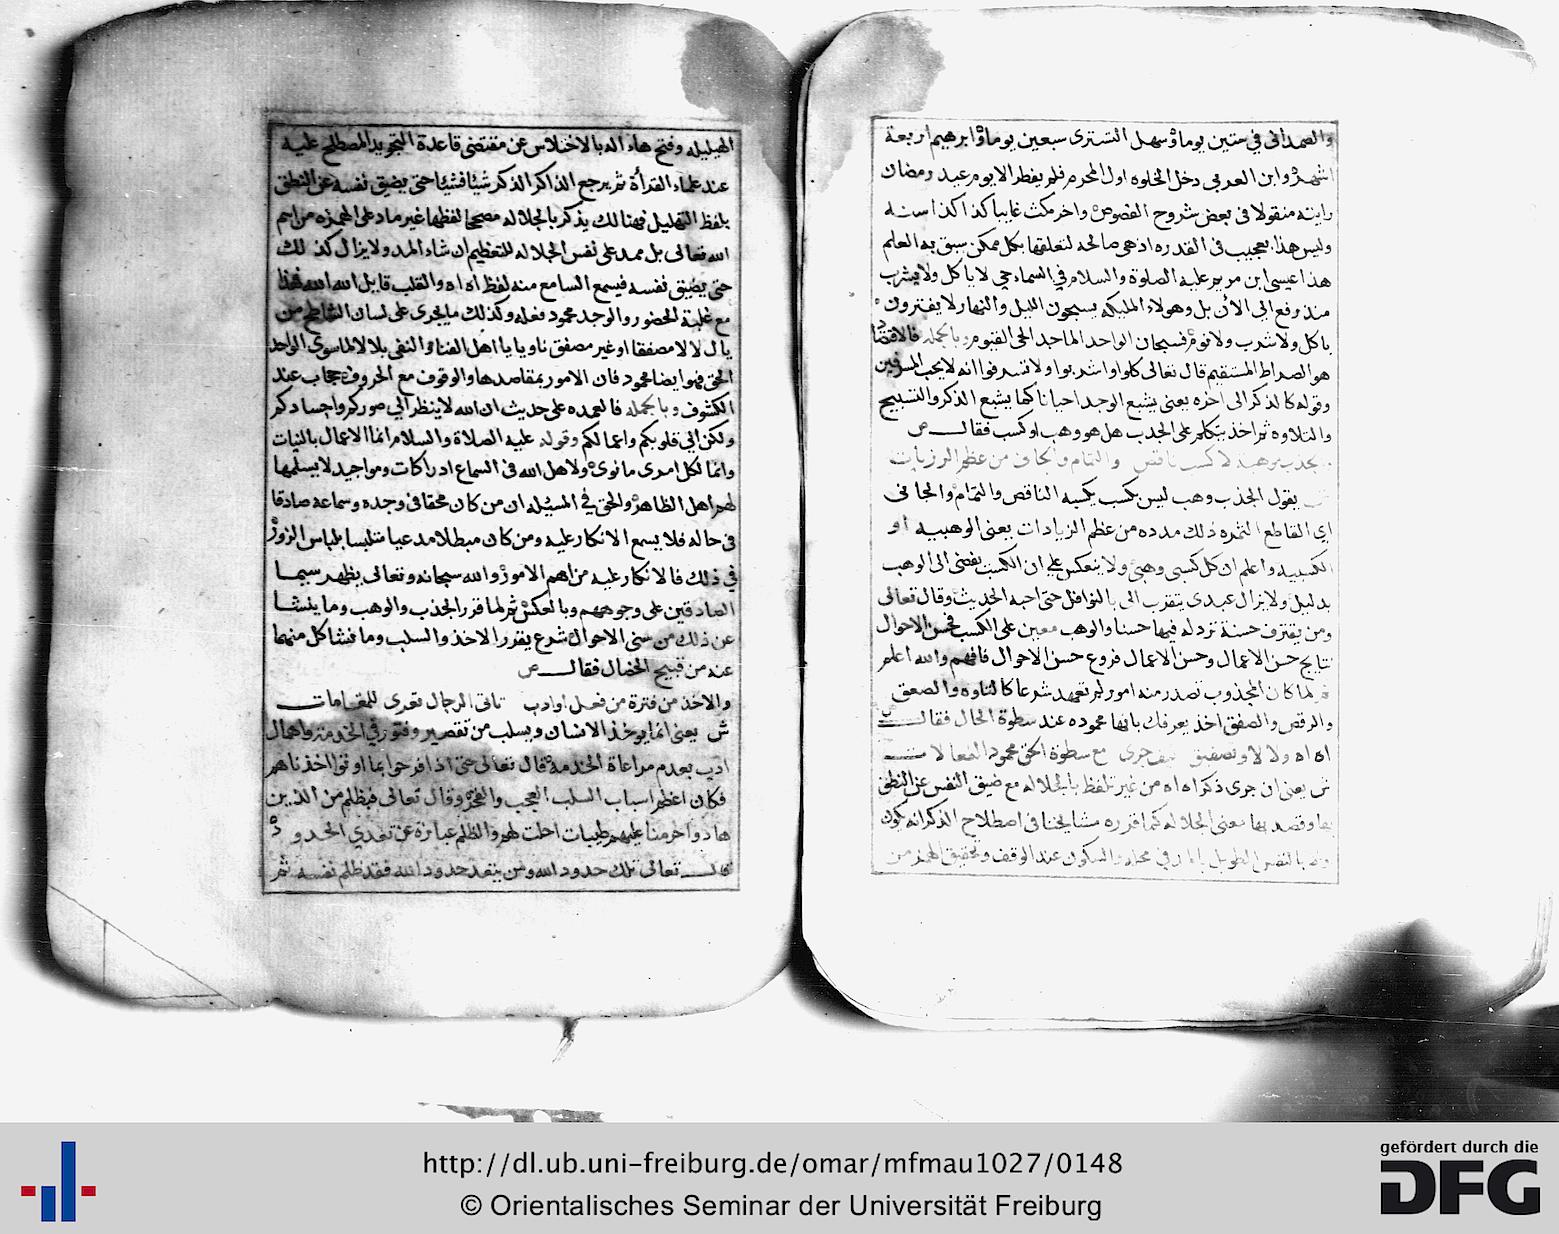 والصمدانى في ستين يوما وسهل التسترى سبعين يوما وابرهيم اربعة
اشهر وابن العربي دخل الخلوه اول المحرم فلم يفطر الا يوم عيد رمضان
رايته منقولا فى بعض شروح الفصوص واخر مكث غايبا كذا كذا سنه
وليس هذا بعجيب فى القدره اذ هى صالحه لتعلقها بكل ممكن سبق به العلم
هذا عيسى ابن مريم عليه الصلوة والسلام في السماء حي لا ياكل ولا يشرب
منذ رفع الي الأن بل وهولاء المليكه يسبحون الليل والنهار لا يفترون
باكل ولا شرب ولا نوم فسبحان الواحد الماجد الحى القيوم وبالجمله فالاقتصاد
هو الصراط المستقيم قال تعالى كلوا واشربوا ولا تسرفوا انه لا يحب المسرفين
وقوله كالذكر الى اخره يعنى يشبع الوجد احيانا كما يشبع الذكر والتسبيح
والتلاوه ثم اخذ يتكلم على الجذب هل هو وهب او كسب فقال ص
لا كسب ناقص والتمام والجاف من عظم الرزيات
يقول الجذب وهب ليس بكسب يكسبه الناقص والتمام والجافى
اي القاطع الثمره ذلك مدده من عظم الزيادات يعنى الوهبيه او
الكسبيه واعلم ان كل كسبى وهبى ولا ينعكس علي ان الكسب يفضى الى الوهب
بدليل ولا يزال عبدى يتقرب الى بالنوافل حتى احبه الحديث وقال تعالى
ومن يقترف حسنة نزد له فيها حسنا والوهب معين على الكسب فحسن الاحوال
نتايج حسن الاعمال وحسن الاعمال فروع حسن الاحوال فافهم والله اعلم
لما كان المجذوب تصدر منه امور لم تعهد شرعا كالتاوه والصعق
والرقص والصفق اخذ يعرفك بانها محموده عند سطوة الحال فقال ص
اه اه ولا لا وتصفيق جرى مع سطوة الحق محمود
ش يعنى ان جرى ذكر اه اه من غير تلفظ بالجلاله مع ضيق النفس عن النطق
بها وقصد بها معنى الجلاله كما قرره مشايخنا فى اصطلاح الذكر انه يكون
بالنفس الطويل والسكون عند الوقف وتحقيق الهمز من
الهيليله وفتح هاء اله بالاختلاس عن مقتضى قاعدة التجويد المصطلح عليه
عند علماء القراة ثم يرجع الذاكر الذكر شيئا فشيئا حتى يضيق نفسه عن النطق
بلفظ التهليل فهنالك يذكر بالجلاله مصححا لفظها غير ماد على الهمزه من اسم
الله تعالى بل ممد على نفس الجلاله للتعظيم ان شاء المد ولا يزال كذلك
حتى يضيق نفسه فيسمع السامع منه لفظ اه اه والقلب قايل الله الله فهذا
مع غلبة الحضور والوجد محمود فعله وكذلك ما يجرى على لسان الشاطح من
يال لا لا مصفقا او غير مصفق ناويا يا اهل الفنا والنفى بلا لا لما سوى الواحد
الحق فهو ايضا محمود فان الامور بمقاصدها والوقوف مع الحروف حجاب عند
الكشوف وبالجمله فالعمده على حديث ان الله لا ينظر الي صوركم واجسادكم
ولكن الي قلوبكم واعمالكم وقوله عليه الصلاة والسلام انما الاعمال بالنيات
وانما لكل امرى ما نوى ولاهل الله فى السماع ادراكات ومواجيد لا يسلمها
لهم اهل الظاهر والحق في المسئله ان من كان محقا فى وجده وسماعه صادقا
فى حاله فلا يسع الانكار عليه ومن كان مبطلا مدعيا متلبسا بلباس الزور
في ذلك فالانكار عليه من اهم الامور والله سبحانه وتعالى يظهر سيما
الصادقين على وجوههم وبالعكس ثم لما قرر الجذب والوهب وما ينشا
عن ذلك من سنى الاحوال شرع يقرر الاخذ والسلب وما فنشا كل منهما
عنه من قبيح الخصال فقال ص
والاخذ من فترة من فعل او ادب تاتى الرجال تعدى للمقامات
ش يعنى انما يوخذ الانسان ويسلب من تقصير وفتور في الخدمة واهمال
ادب بعدم مراعاة الخدمة قال تعالى حتى اذا فرحوا بما اوتوا اخذناهم
فكان اعظم اسباب السلب العجب والفخر وقال تعالى فبظلم من الذين
هادوا حرمنا عليهم طيبات احلت لهم والظلم عبارة عن تعدي الحدود
قال تعالى تلك حدود الله ومن يتعد حدود الله فقد ظلم نفسه ثم
http://dl.ub.uni-freiburg.de/omar/mfmau1027/0148
© Orientalisches Seminar der Universität Freiburg
gefördert durch die
DFG